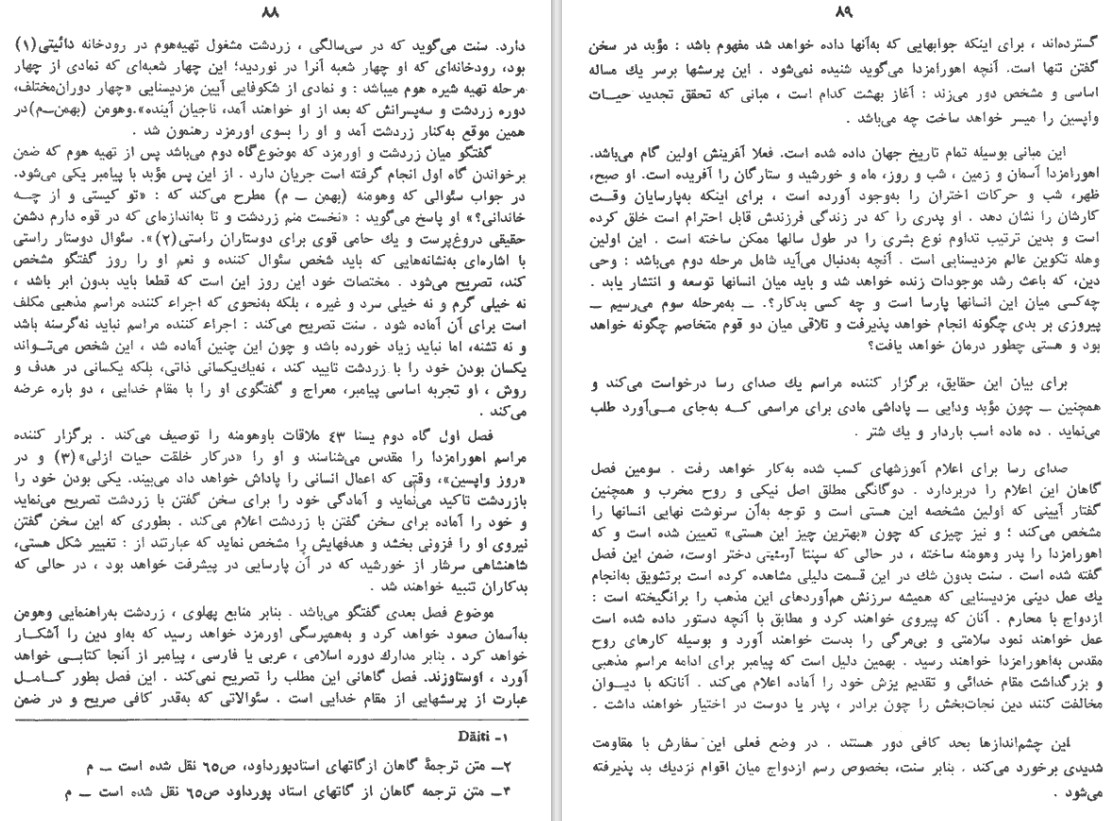 ۸۸
دارد. سنت می‌گوید که در سی‌سالگی ، زردشت مشغول تهیه‌هوم در رودخانه دائیتی(۱)
بود، رودخانه‌ای که او چهار شعبه آنرا در نوردید؛ این چهار شعبه‌ای که نمادی از چهار
مرحله تهیه شیره هوم میباشد : و نمادی از شکوفایی آیین مزدیسنایی «چهار دوران‌مختلف،
دوره زردشت و سه‌پسرانش که بعد از او خواهند آمد، ناجیان آینده».وهومن (بهمن‌ــم)در
همین موقع به‌کنار زردشت آمد و او را بسوی اورمزد رهنمون شد .
گفتگو میان زردشت و اورمزد که موضوع‌گاه دوم می‌باشد پس از تهیه هوم که ضمن
برخواندن گاه اول انجام گرفته است جریان دارد . از این پس مؤبد با پیامبر یکی می‌شود.
در جواب سئوالی که وهومنه (بهمن ــ م) مطرح می‌کند که : «تو کیستی و از چــه
خاندانی؟» او پاسخ می‌گوید : «نخست منم زردشت و تا به‌اندازه‌ای که در قوه دارم دشمن
حقیقی دروغ‌پرست و یك حامی قوی برای دوستاران راستی(۲)». سئوال دوستار راستی
با اشاره‌ای به‌نشانه‌هایی که باید شخص سئوال کننده و نعم او را روز گفتگو مشخص
کند، تصریح می‌شود . مختصات خود این روز این است که قطعا باید بدون ابر باشد ،
نه خیلی گرم و نه خیلی سرد و غیره ، بلکه به‌نحوی که اجراء کننده مراسم مذهبی مکلف
است برای آن آماده شود . سنت تصریح می‌کند : اجراء کننده مراسم نباید نه‌گرسنه باشد
و نه تشنه، اما نباید زیاد خورده باشد و چون این چنین آماده شد ، این شخص می‌تــواند
یکسان بودن خود را با زردشت تایید کند ، نه‌یك‌یکسانی ذاتی، بلکه یکسانی در هدف و
روش ، او تجربه اساسی پیامبر، معراج و گفتگوی او را با مقام خدایی ، دو باره عرضه
می‌کند .
فصل اول گاه دوم یسنا ٤٣ ملاقات باوهومنه را توصیف می‌کند . برگزار کننده
مراسم اهورامزدا را مقدس می‌شناسند و او را «درکار خلقت حیات ازلی»(۳) و در
«روز واپسین»، وقتی که اعمال انسانی را پاداش خواهد داد می‌بیند. یکی بودن خود را
بازردشت تاکید می‌نماید و آمادگی خود را برای سخن گفتن با زردشت تصریح می‌نماید
و خود را آماده برای سخن گفتن با زردشت اعلام می‌کند . بطوری که این سخن گفتن
نیروی او را فزونی بخشد و هدفهایش را مشخص نماید که عبارتند از : تغییر شکل هستی،
شاهنشاهی سرشار از خورشید که در آن پارسایی در پیشرفت خواهد بود ، در حالی که
بدکاران تنبیه خواهند شد .
موضوع فصل بعدی گفتگو می‌باشد . بنابر منابع پهلوی ، زردشت به‌راهنمایی وهومن
به‌آسمان صعود خواهد کرد و به‌همپرسگی اورمزد خواهد رسید که به‌او دین را آشکــار
خواهد کرد . بنابر مدارك دوره اسلامی ، عربی یا فارسی ، پیامبر از آنجا کتابــی خواهد
آورد ، اوستاوزند. فصل گاهانی این مطلب را تصریح نمی‌کند . این فصل بطور کــامــل
عبارت از پرسشهایی از مقام خدایی است . سئوالاتی که به‌قدر کافی صریح و در ضمن
۱– Dāiti
۲ــ متن ترجمهٔ گاهان ازگاتهای استادپورداود، ص٦٥ نقل شده است ــ م
۳ــ متن ترجمه گاهان از گاتهای استاد پورداود ص٦٥ نقل شده است ــ م
۸۹
گسترده‌اند ، برای اینکه جوابهایی که به‌آنها داده خواهد شد مفهوم باشد : مؤبد در سخن
گفتن تنها است. آنچه اهورامزدا می‌گوید شنیده نمی‌شود . این پرسشها برسر یك مساله
اساسی و مشخص دور می‌زند : آغاز بهشت کدام است ، مبانی که تحقق تجدید حیــات
واپسین را میسر خواهد ساخت چه می‌باشد .
این مبانی بوسیله تمام تاریخ جهان داده شده است. فعلا آفرینش اولین گام می‌باشد.
اهورامزدا آسمان و زمین ، شب و روز، ماه و خورشید و ستارگان را آفریده است. او صبح،
ظهر، شب و حرکات اختران را به‌وجود آورده است ، برای اینکه به‌پارسایان وقــت
کارشان را نشان دهد . او پدری را که در زندگی فرزندش قابل احترام است خلق کرده
است و بدین ترتیب تداوم نوع بشری را در طول سالها ممکن ساخته است . این اولین
وهله تکوین عالم مزدیسنایی است . آنچه به‌دنبال می‌آید شامل مرحله دوم می‌باشد : وحی
دین، که باعث رشد موجودات زنده خواهد شد و باید میان انسانها توسعه و انتشار یابد .
چه‌کسی میان این انسانها پارسا است و چه کسی بدکار؟. ــ به‌مرحله سوم می‌رسیم ــ
پیروزی بر بدی چگونه انجام خواهد پذیرفت و تلاقی میان دو قوم متخاصم چگونه خواهد
بود و هستی چطور درمان خواهد یافت؟
برای بیان این حقایق، برگزار کننده مراسم یك صدای رسا درخواست می‌کند و
همچنین ــ چون مؤبد ودایی ــ پاداشی مادی برای مراسمی کــه به‌جای مــی‌آورد طلب
می‌نماید . ده ماده اسب باردار و یك شتر .
صدای رسا برای اعلام آموزشهای کسب شده به‌کار خواهد رفت . سومین فصل
گاهان این اعلام را دربردارد . دوگانگی مطلق اصل نیکی و روح مخرب و همچنین
گفتار آیینی که اولین مشخصه این هستی است و توجه به‌آن سرنوشت نهایی انسانها را
مشخص می‌کند ؛ و نیز چیزی که چون «بهترین چیز این هستی» تعیین شده است و که
اهورامزدا را پدر وهومنه ساخته ، در حالی که سپنتا آرمئیتی دختر اوست، ضمن این فصل
گفته شده است . سنت بدون شك در این قسمت دلیلی مشاهده کرده است برتشویق به‌انجام
یك عمل دینی مزدیسنایی که همیشه سرزنش هم‌آوردهای این مذهب را برانگیخته است :
ازدواج با محارم . آنان که پیروی خواهند کرد و مطابق با آنچه دستور داده شده است
عمل خواهند نمود سلامتی و بی‌مرگی را بدست خواهند آورد و بوسیله کارهای روح
مقدس به‌اهورامزدا خواهند رسید . بهمین دلیل است که پیامبر برای ادامه مراسم مذهبی
و بزرگداشت مقام خدائی و تقدیم یزش خود را آماده اعلام می‌کند . آنانکه با دیــوان
مخالفت کنند دین نجات‌بخش را چون برادر ، پدر یا دوست در اختیار خواهند داشت .
این چشم‌اندازها بحد کافی دور هستند . در وضع فعلی این سفارش با مقاومت
شدیدی برخورد می‌کند . بنابر سنت، بخصوص رسم ازدواج میان اقوام نزدیك بد پذیرفته
می‌شود .